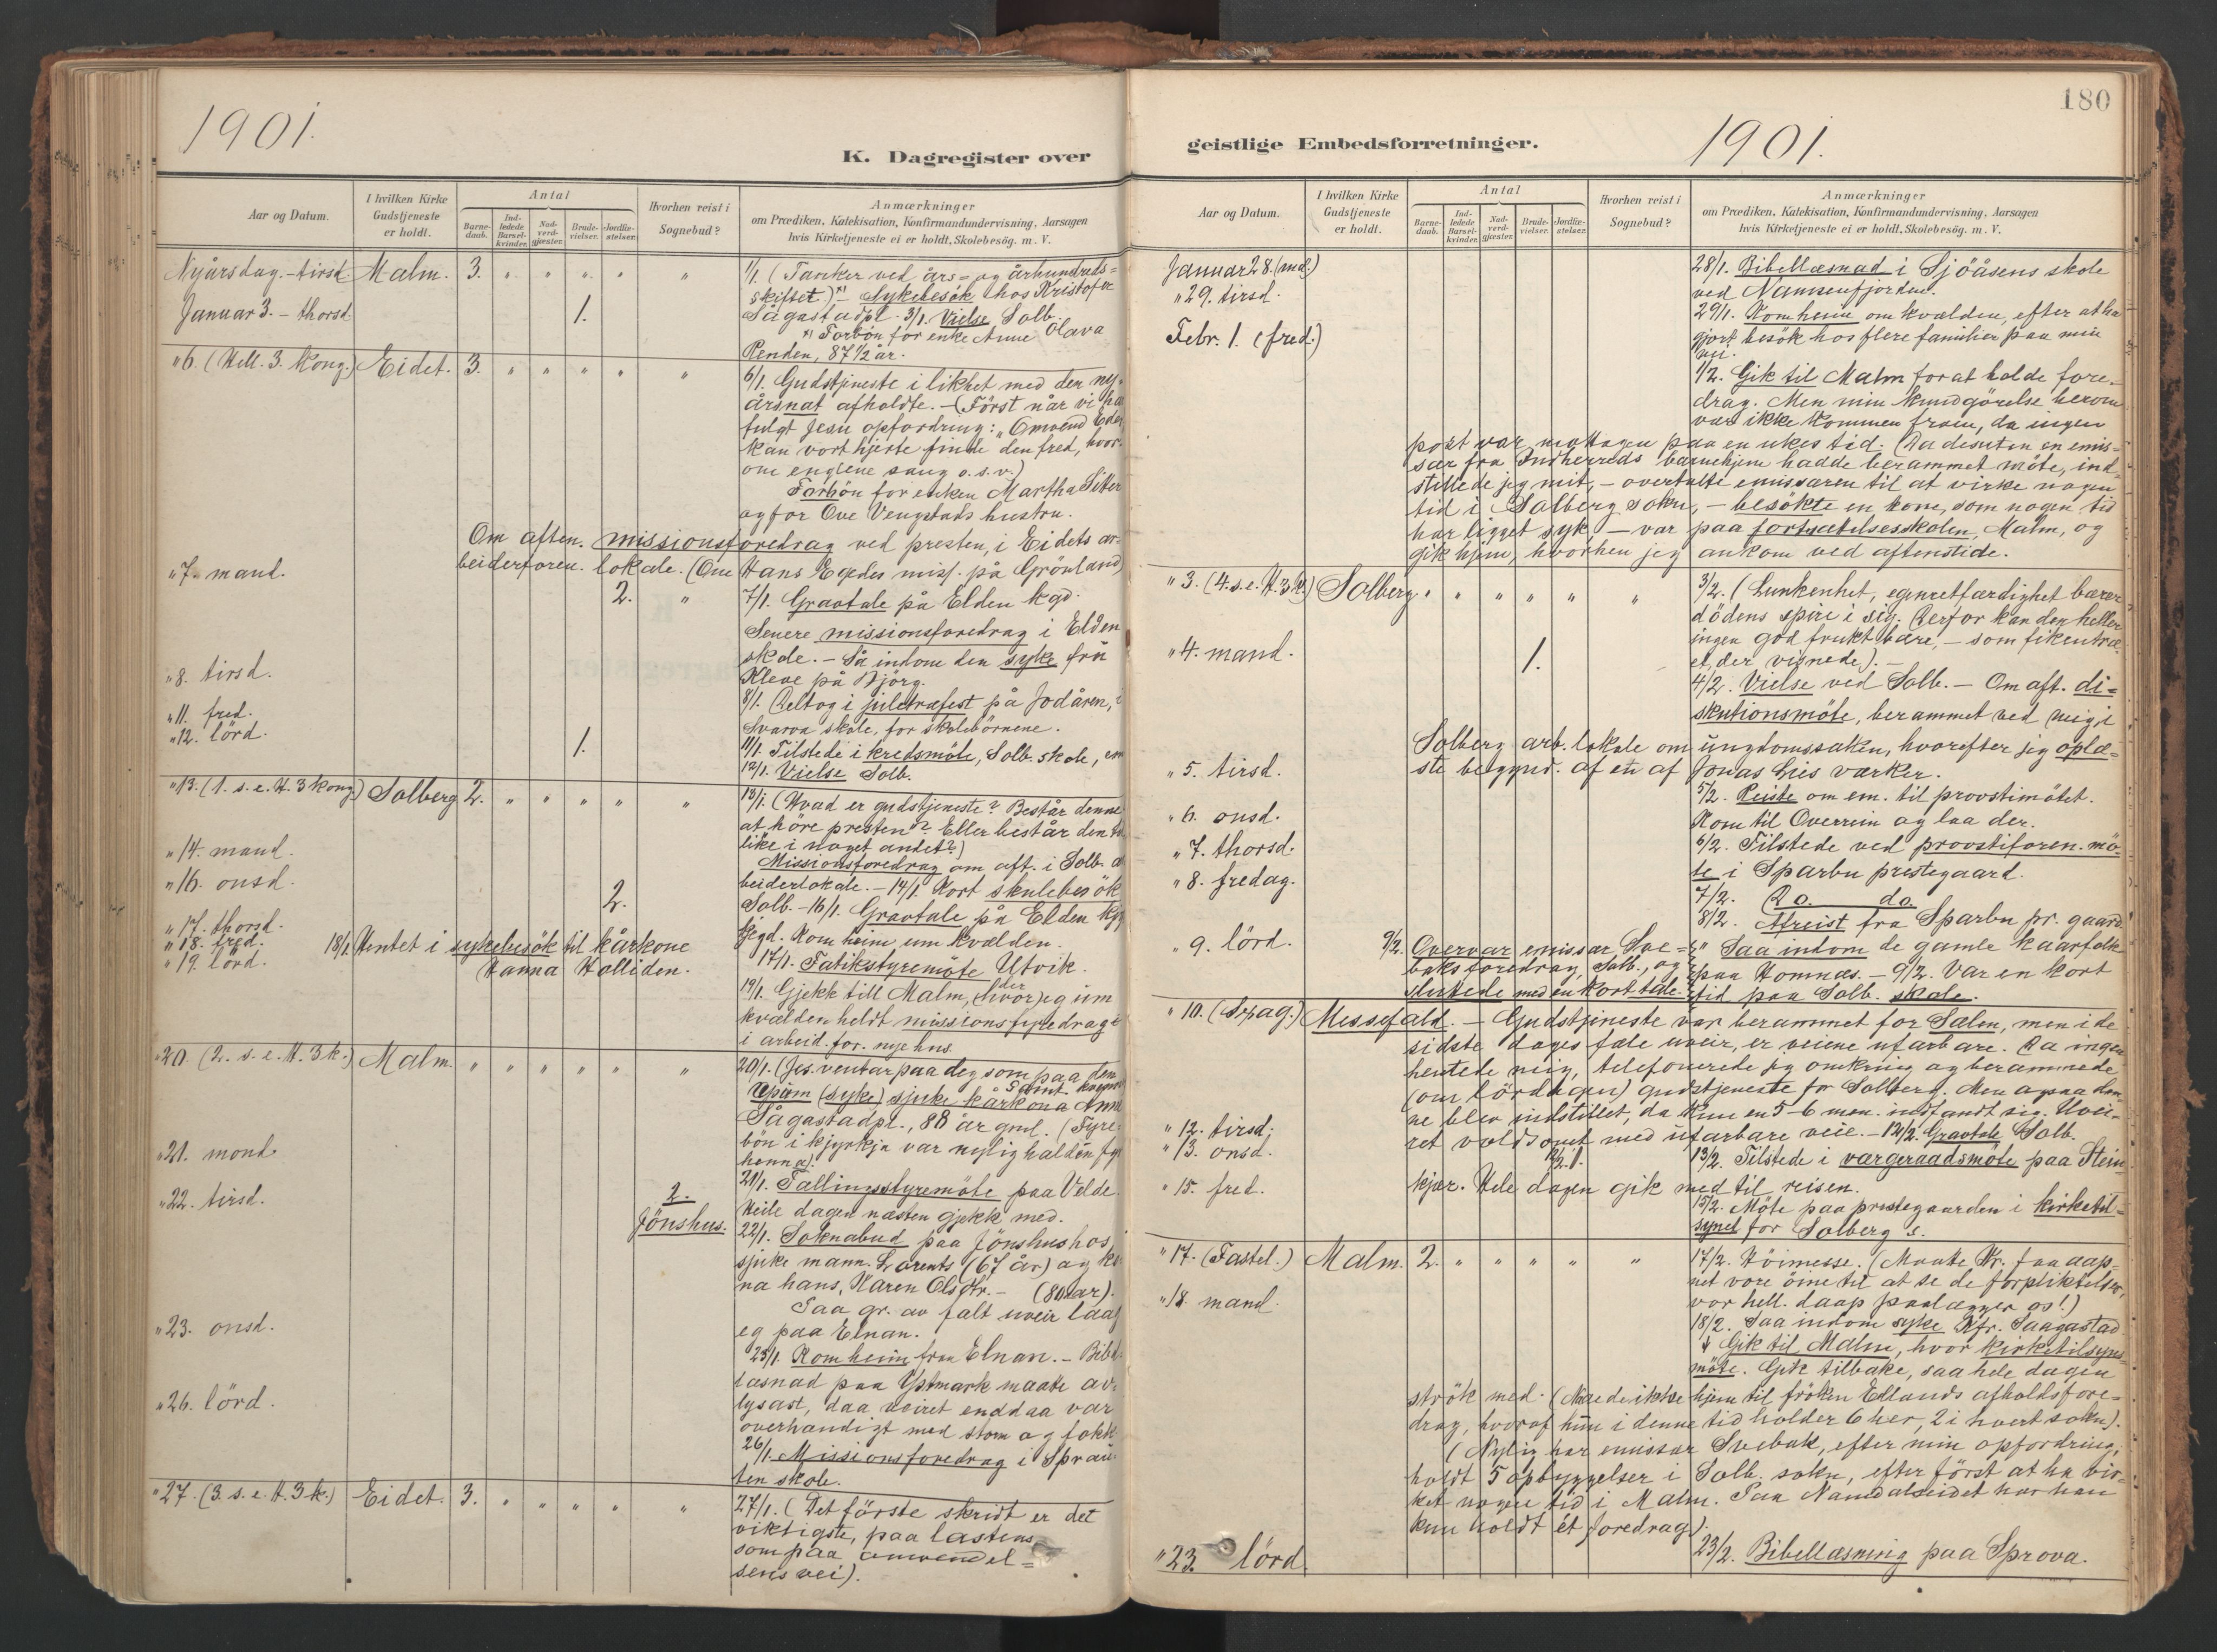 1901.
K. Dagregister over
Aar og Datum.
I hvilken Kirke Gudstjeneste er holdt.
Antal
Barne-daab.
Ind-ledede Barsel-kvinder.
Nad-verd-gjæster.
Brude-vielser.
Jordfæ-stelser.
Hvorhen reist i Sognebud?
Anmærkninger
om Prædiken, Katekisation, Konfirmandundervisning, Aarsagen
hvis Kirketjeneste ei er holdt, Skolebesøg. m. V.
Nyårsdag. - tirsd. Malm. 3. " " " " " 1/1 (Tanker ved års- og århundreds-
skiftet.) x) - Sykebesök hos Kristofer
Januar 3. - thorsd. 1. Sågastadpl. 3/1. Vielse Solb.
x) Forbön for enke Anne Olava
Renden, 87 1/2 år.
" 6. (Hell. 3. Kong.) Eidet. 3. " " " " " 6/1. Gudstjeneste i likhet med den ny-
årsnat afholdte. - (Först når vi har
fulgt Jesu opfordring: "Omvend Eder,
kan vort hjerte finde den fred, hvor-
om englene sang o.s.v.)
Forbön for enken Martha Sitter
og for Ove Vengstads hustru.
Om aften. missionsforedrag ved presten, i Eidets ar-
beiderforen. lokale. (Om Hans Egedes miss. på Grönland)
" 7. mand. 2. " 7/1. Gravtale på Elden kgd.
Senere missionsforedrag i Elden
skole. - Så indom den syke frü
Kleve på Bjórg.
" 8. tirsd. 8/1. Deltog i juletræfest på Jodåren, i
Svarva skole, for skolebörnene.
" 11. fred. 11/1. Tilstede i kredsmöte, Solb. skole, em
" 12. lörd. 1. 12/1. Vielse Solb.
" 13. (1. s. e. H. 3 kong.) Solberg 2. " " " " " 13/1. (Hvad er gudstjeneste? Består denne
at höre presten? Eller består den til-
like i noget andet?)
Missionsforedrag om aft. i Solb. ar-
" 14. mand. beiderlokale. - 14/1. Kort skulebesök
" 16. onsd. 2. Solb. - 16/1. Gravtale på Elden
kgd. Kom heim um kvælden.
" 17. thorsd. 17/1. Fatikstyremöte Utvik.
" 18. fred. 18/1. Hentet i sykebesök til kårkone
Hanna Holliden.
" 19. lörd. 19/1. Gjekk till Malm, (hvor) der eg um
kvælden heldt missionsfyredrag
i arbeid. for. nye hus.
" 20. (2. s. e. H. 3 k.) Malm. " " " " " " 20/1. (Jes. ventar paa deg som paa den
(syke) sjuke kårkona Anne
Sågastadpl., 88 år gml. (Fyre-
bön i kjyrkja var nylig halden fyr
henna).
" 21. mond. 21/1. Tallingsstyremöte paa Velde.
Heile dagen næsten gjekk med.
" 22. tirsd. 2. Jönshus. 22/1. Soknabud paa Jönshus hos
sjuke mann. Lorents (67 år) og ko-
na hans, Karen Olsdtr. - (80 aar).
Paa gr. av fælt uveir laag
eg paa Elnan.
" 23. onsd. 23/1. Kom heim fraa Elnan. - Bibel-
læsnad paa Ystmark maatte av-
lysast, daa veiret enddaa var
overhandigt med storm og fokk.
" 26. lörd. 26/1. Missionsforedrag i Sprau-
ten skole.
" 27. (3. s. e. H. 3 k.) Eidet. 3. " " " " " 27/1. (Det förste skridt er det
viktigste, paa lastens
som paa omvendel-
sens vei).
180
geistlige Embedsforretninger.
1901.
Aar og Datum.
I hvilken Kirke Gudstjeneste er holdt.
Antal
Barne-daab.
Ind-ledede Barsel-kvinder.
Nad-verd-gjæster.
Brude-vielser.
Jordfæ-stelser.
Hvorhen reist i Sognebud?
Anmærkninger
om Prædiken, Katekisation, Konfirmandundervisning, Aarsagen
hvis Kirketjeneste ei er holdt, Skolebesøg. m. V.
Januar 28. (md.) 28/1. Bibellæsnad i Sjöåsens skole
ved Namsenfjorden.
" 29. tirsd. 29/1. Kom heim om kvælden, efter at ha
gjort besök hos flere familier paa min
vei.
Febr. 1. (fred.) 1/2. Gik til Malm for at holde fore-
drag. Men min kundgörelse herom
var ikke kommen fram, da ingen
post var mottagen paa en ukes tid. Da desuten en emis-
sær fra Indherreds barnehjem hadde berammet möte, ind-
stillede jeg mit, - overtalte emissæren til at virke nogen
tid i Solberg sokn, - besökte en kone, som nogen tid
har ligget syk, - var paa fortsættelsesskolen, Malm, og
gik hjem, hvorhen jeg ankom ved aftenstide.
" 3. (4. s. e. H. 3 k.) Solberg. " " " " " " 3/2. (Lunkenhet, egenretfærdighet bærer
dödens spire i sig. Derfor kan den heller
ingen god frukt bære, - som fikentræ-
et, der visnede). -
" 4. mand. 1. 4/2. Vielse ved Solb. - Om aft. di-
skutionsmöte, berammet ved mig i
Solberg arb. lokale om ungdomssaken, hvorefter jeg oplæ-
ste begynd. af en af Jonas Lies værker.
" 5. tirsd. 5/2. Reiste om em. til provstimötet.
Kom til Overrein og laa der.
" 6. onsd. 6/2. Tilstede ved provstiforen. mö-
te i Sparbu prestegaard.
" 7. thorsd. 7/2. Do. do.
" 8. fredag. 8/2. Afreist fra Sparbu pr. gaard.
" Saa indom de gamle kaarfolk
paa Homnæs. - 9/2. Var en kort
tid paa Solb. skole.
" 9. lörd. 9/2. Overvar emissær Sve-
baks foredrag, Solb., og
sluttede med en kort tale.
" 10. (Spag.) Messefald. - Gudstjeneste var berammet for Salen, men i de
sidste dages fæle uveir, er veiene ufarbare. Da ingen
hentede mig, telefonerede jeg omkring og berammede
(om lördagen) gudstjeneste for Solberg. Men ogsaa den-
ne blev indstillet, da kun en 5-6 men. indfandt sig. Uvei-
" 12. tirsd. ret voldsomt med ufarbare veie. - 12/2. Gravtale Solb.
12/2. 1.
" 13. onsd. 13/2. Tilstede i værgeraadsmöte paa Stein-
kjær. Hele dagen gik med til reisen.
" 15. fred. 15/2. Möte paa prestegaarden i kirketil-
synet for Solberg s.
" 17. (Fastel.) Malm. 2. " " " " " 17/2. Höimesse. (Maatte Kr. faa aap-
net vore öine til at se de forpliktelser,
vor hell. daap paalægger os!)
" 18. mand. 18/2. Saa indom syke Kfr. Saagastad
& Gik til Malm, hvor kirketilsyns-
möte. Gik tilbake, saa hele dagen
strök med. (Naadde ikke hjem til fröken Edlands afholdsfore-
drag, hvoraf hun i denne tid holder 6 her, 2 i hvert sokn).
(Nylig har emissær Svebak, efter min opfordring,
holdt 5 opbyggelser i Solb. sokn, efter först at ha vir-
ket nogen tid i Malm. Paa Namdalseidet har han
kun holdt ét foredrag).
" 23. lörd. 23/2. Bibellæsning paa Sprova.